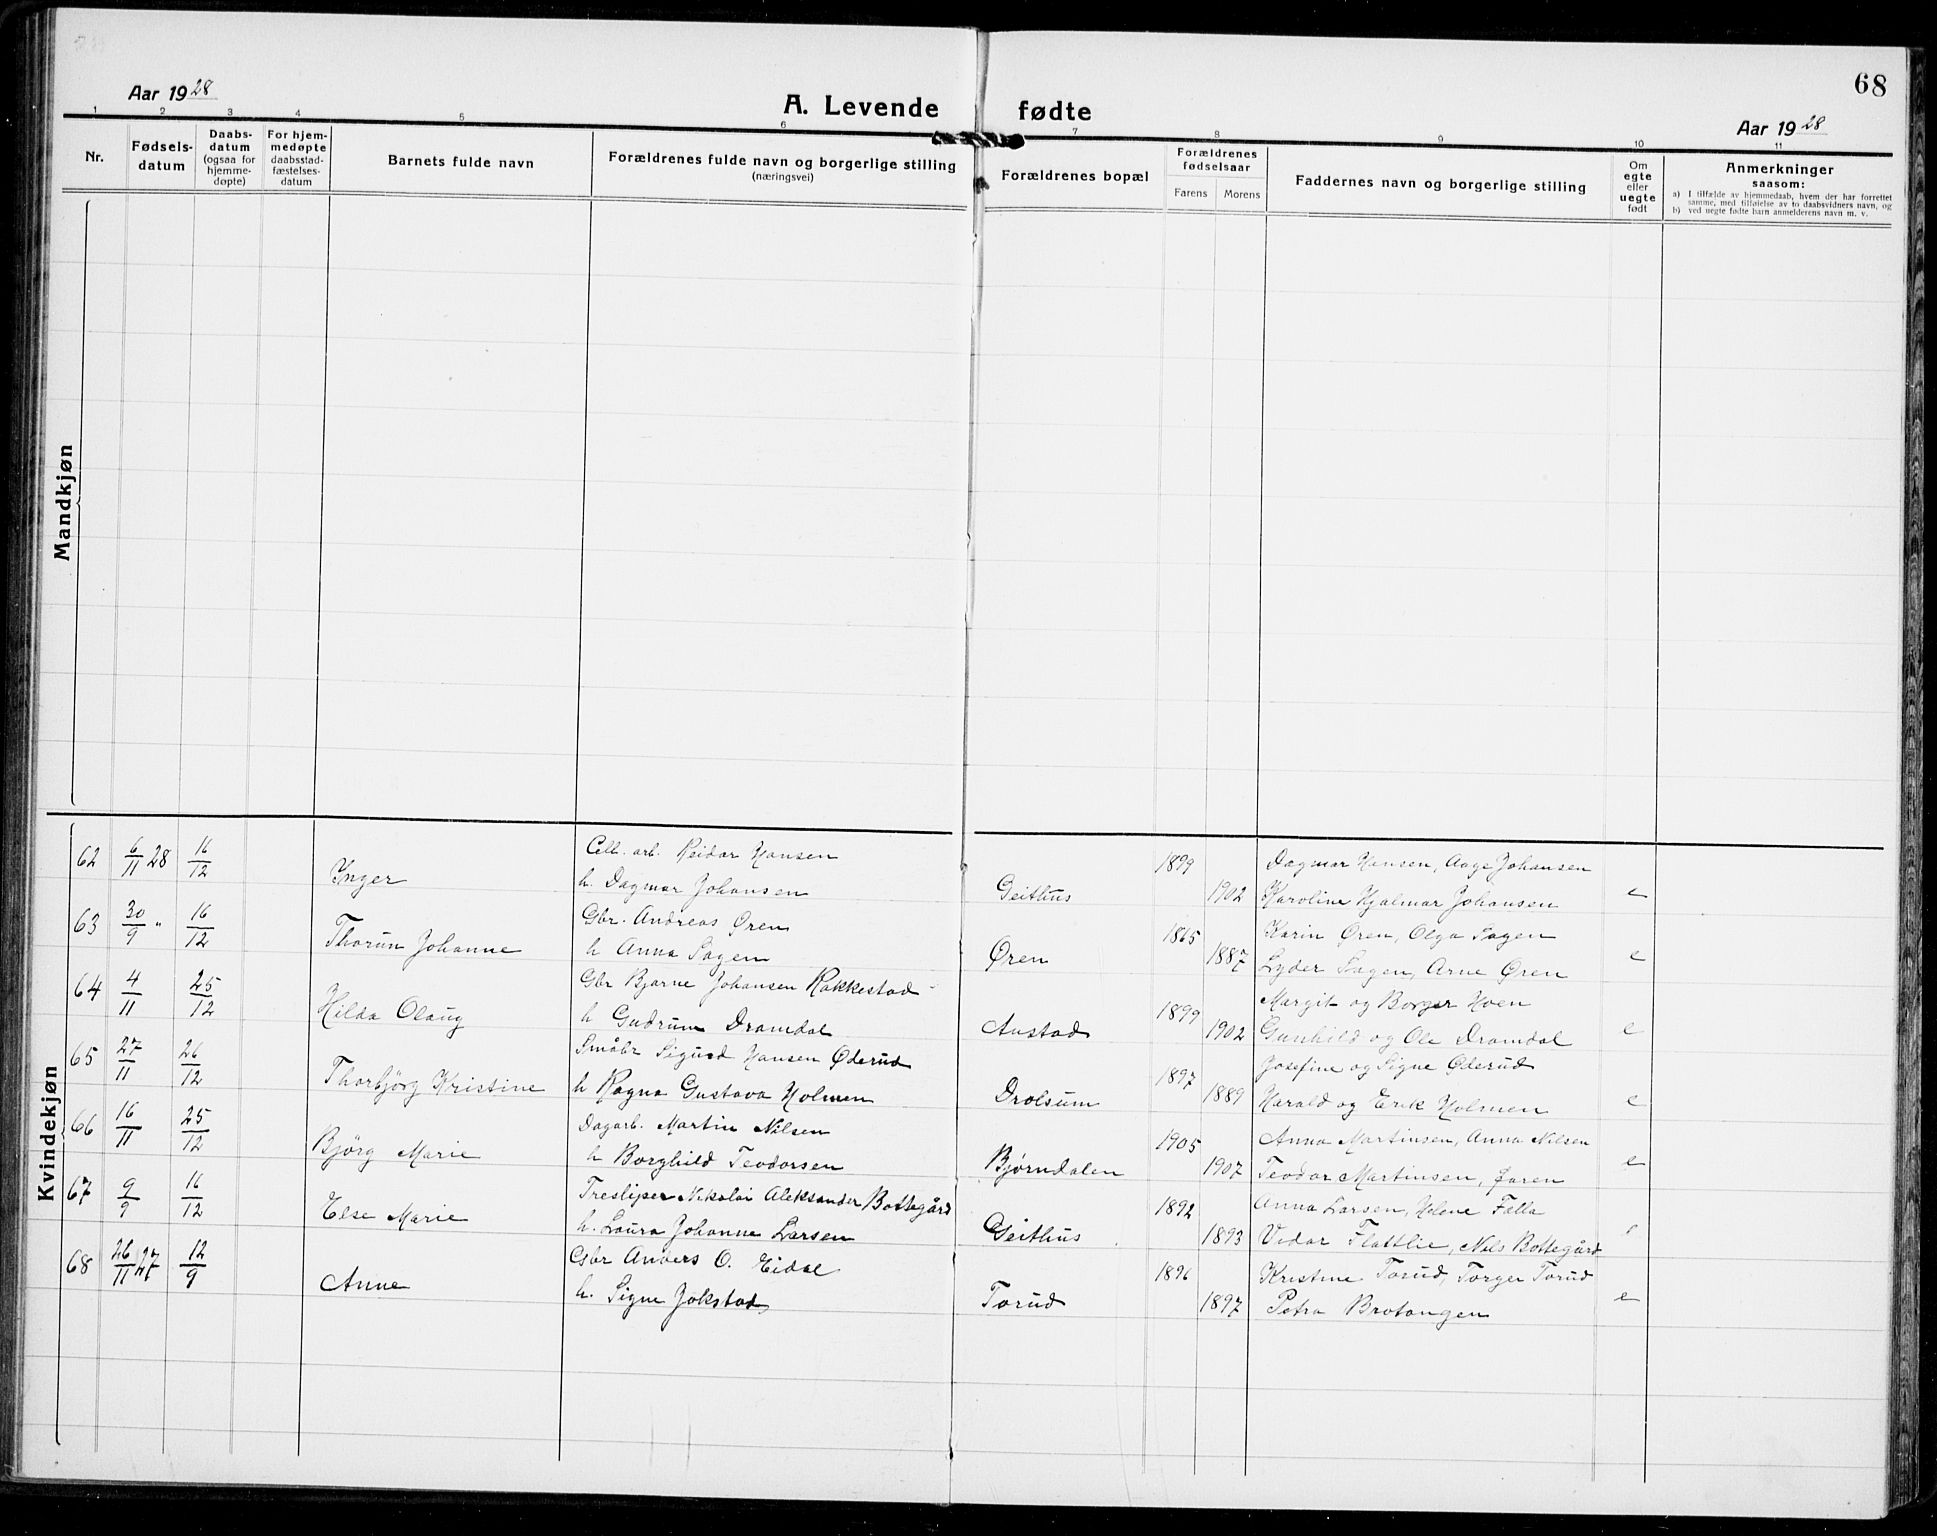 68
Aar 1928
A. Levende fødte
Aar 1928
1 2 3 4 5 6 7 8 9 10 11
Nr.
Fødsels-
datum
Daabs-
datum
(ogsaa for
hjemme-
døpte)
For hjem-
medøpte
daabsstad-
fæstelses-
datum
Barnets fulde navn
Forældrenes fulde navn og borgerlige stilling
(næringsvei)
Forældrenes bopæl
Forældrenes
fødselsaar
Farens Morens
Faddernes navn og borgerlige stilling
Om
egte
eller
uegte
født
Anmerkninger
saasom:
a) I tilfælde av hjemmedaab, hvem der har forrettet
samme, med tilføielse av to daabsvidners navn, og
b) ved uegte fødte barn anmelderens navn m. v.
Mandkjøn
Kvindekjøn
62 6/11 28 16/12 Cell. arb. Reidar Hansen 1899 Dagmar Hansen, Aage Johansen
Inger h. Dagmar Johansen Geithus 1902 Karoline Hjalmar Johansen e
63 30/9 " 16/12 Gbr. Andreas Øren 1865 Karin Øren, Olga Sagen
Thorun Johanne h Anna Sagen Øren 1887 Lyder Sagen, Arne Øren e
64 4/11 25/12 Gbr Bjarne Johansen Rakkestad 1899 Margit og Borger Hoen
Hilda Olaug h Gudrun Dramdal Austad 1902 Gunhild og Ole Dramdal e
65 27/11 26/12 Småbr Sigurd Hansen Øderud 1897 Josefine og Signe Øderud
Thorbjörg Kristine h Ragna Gustava Holmen Drolsum 1889 Harald og Erik Holmen e
66 16/11 25/12 Dagarb. Martin Nilsen 1905 Anna Martinsen, Anna Nilsen
Bjørg Marie h Borghild Teodorsen Bjørndalen 1907 Teodor Martinsen, Øaren e
67 9/9 16/12 Tresliper Nikolai Aleksander Bottegård 1892 Anna Larsen, Helene Falla
Else Marie h. Laura Johanne Larsen Geithus 1893 Vidar Flattlie, Nils Bottegård e
68 26/11 27 12/9 Gbr Anders O. Eidal 1896 Kristine Torud, Torger Torud
Anne h. Signe Jokstad Torud 1897 Petra Brotangen e